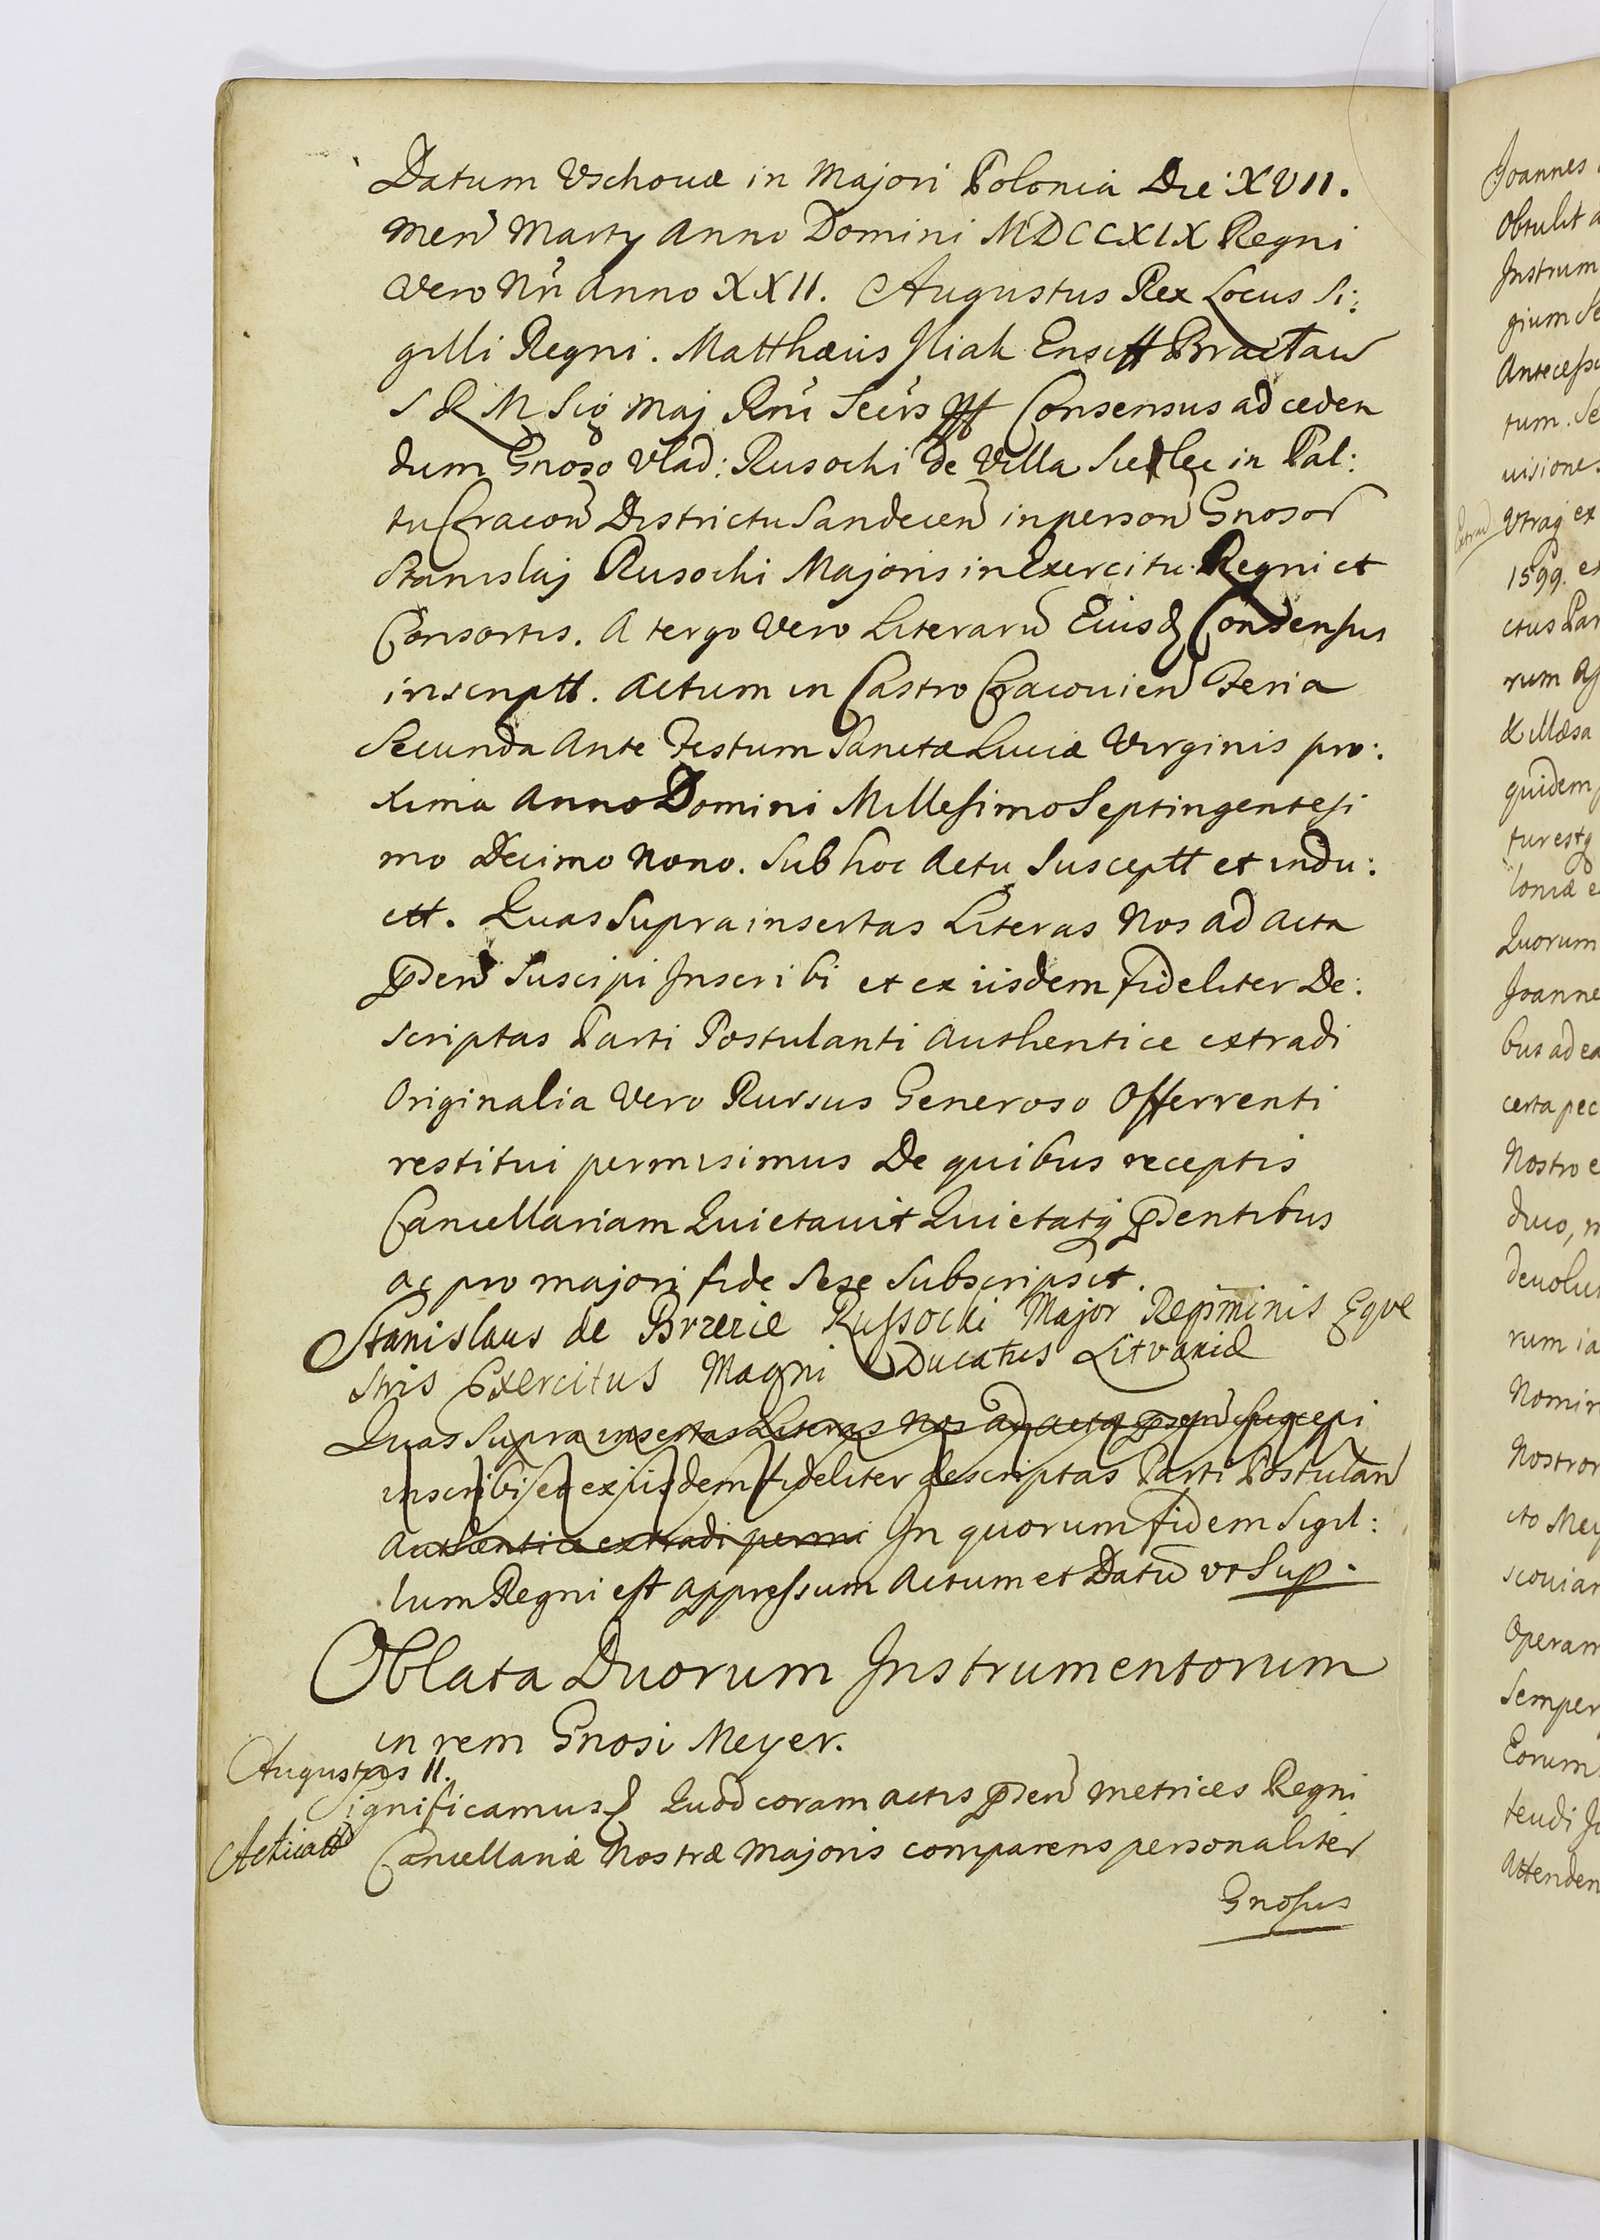 Datum Vschouæ in Majori Polonia Die XVII.
Men Marty Anno Domini MDCCXIX Regni
Vero Nri Anno XXII. Augustus Rex Locus Si:
gilli Regni. Matthæus Iliak Ensiff Bractaw
S R M Sig Maj Rni Secrs Consensus ad ceden
dum Gnoso Vlad: Rusocki de Villa Siedlec in Pal:
tu Cracon Districtu Sandecen in person Gnosor
Stanislaj Rusocki Majoris in Exercitu Regni et
Consortis. A tergo Vero Literaru Eiusd Consensus
inscriptt. Actum in Castro Cracouien Feria
Secunda Ante Festum Sanctæ Luciæ Virginis pro:
xima Anno Domini Millesimo Septingentesi
mo Decimo Nono. Sub hoc Actu Susceptt et indu:
ctt. Quas Supra insertas Literas Nos ad Acta
pden Suscipi Inscribi et ex iisdem fideliter De:
scriptas Parti Postulanti Authentice extradi
Originalia Vero Rursus Generoso Offerrenti
restitui permisimus De quibus receptis
Cancellariam Quietauit Quietatq pdentibus
ac pro majori fide Sese Subscripsit.
Stanislaus de Brzezie Russocki Major Regiminis Eqve
stris Exercitus Magni Ducatus Litvaniæ
Quas Supra insertas Literas Nos ad acta pden Suscepi
inscribi et ex iisdem fideliter descriptas Parti Postulan
Authentice extradi permi In quorum fidem Sigil:
lum Regni est appressum Actum et Datu vt Sup.
Oblata Duorum Instrumentorum
in rem Gnosi Meyer.
Augustus II.
Significamus Quod coram actis pden Metrices Regni
Acticatt
Cancellariæ Nostræ Majoris comparens personaliter
Gnosus
Joannes
Obtulit a
Instrum
gium Se
Antecesso
tum. Se
uisione
Extrad
Vtraq ex
1599. et
ctus Par
rum
quidem
tur estq
loniæ e
Quorum
Joanne
bus ad ea
certa pec
Nostro e
duo, n
deuolu
rum ia
Nomin
Nostror
ito Mey
scouian
Operam
Semper
Eorum
teudi Ju
Attenden